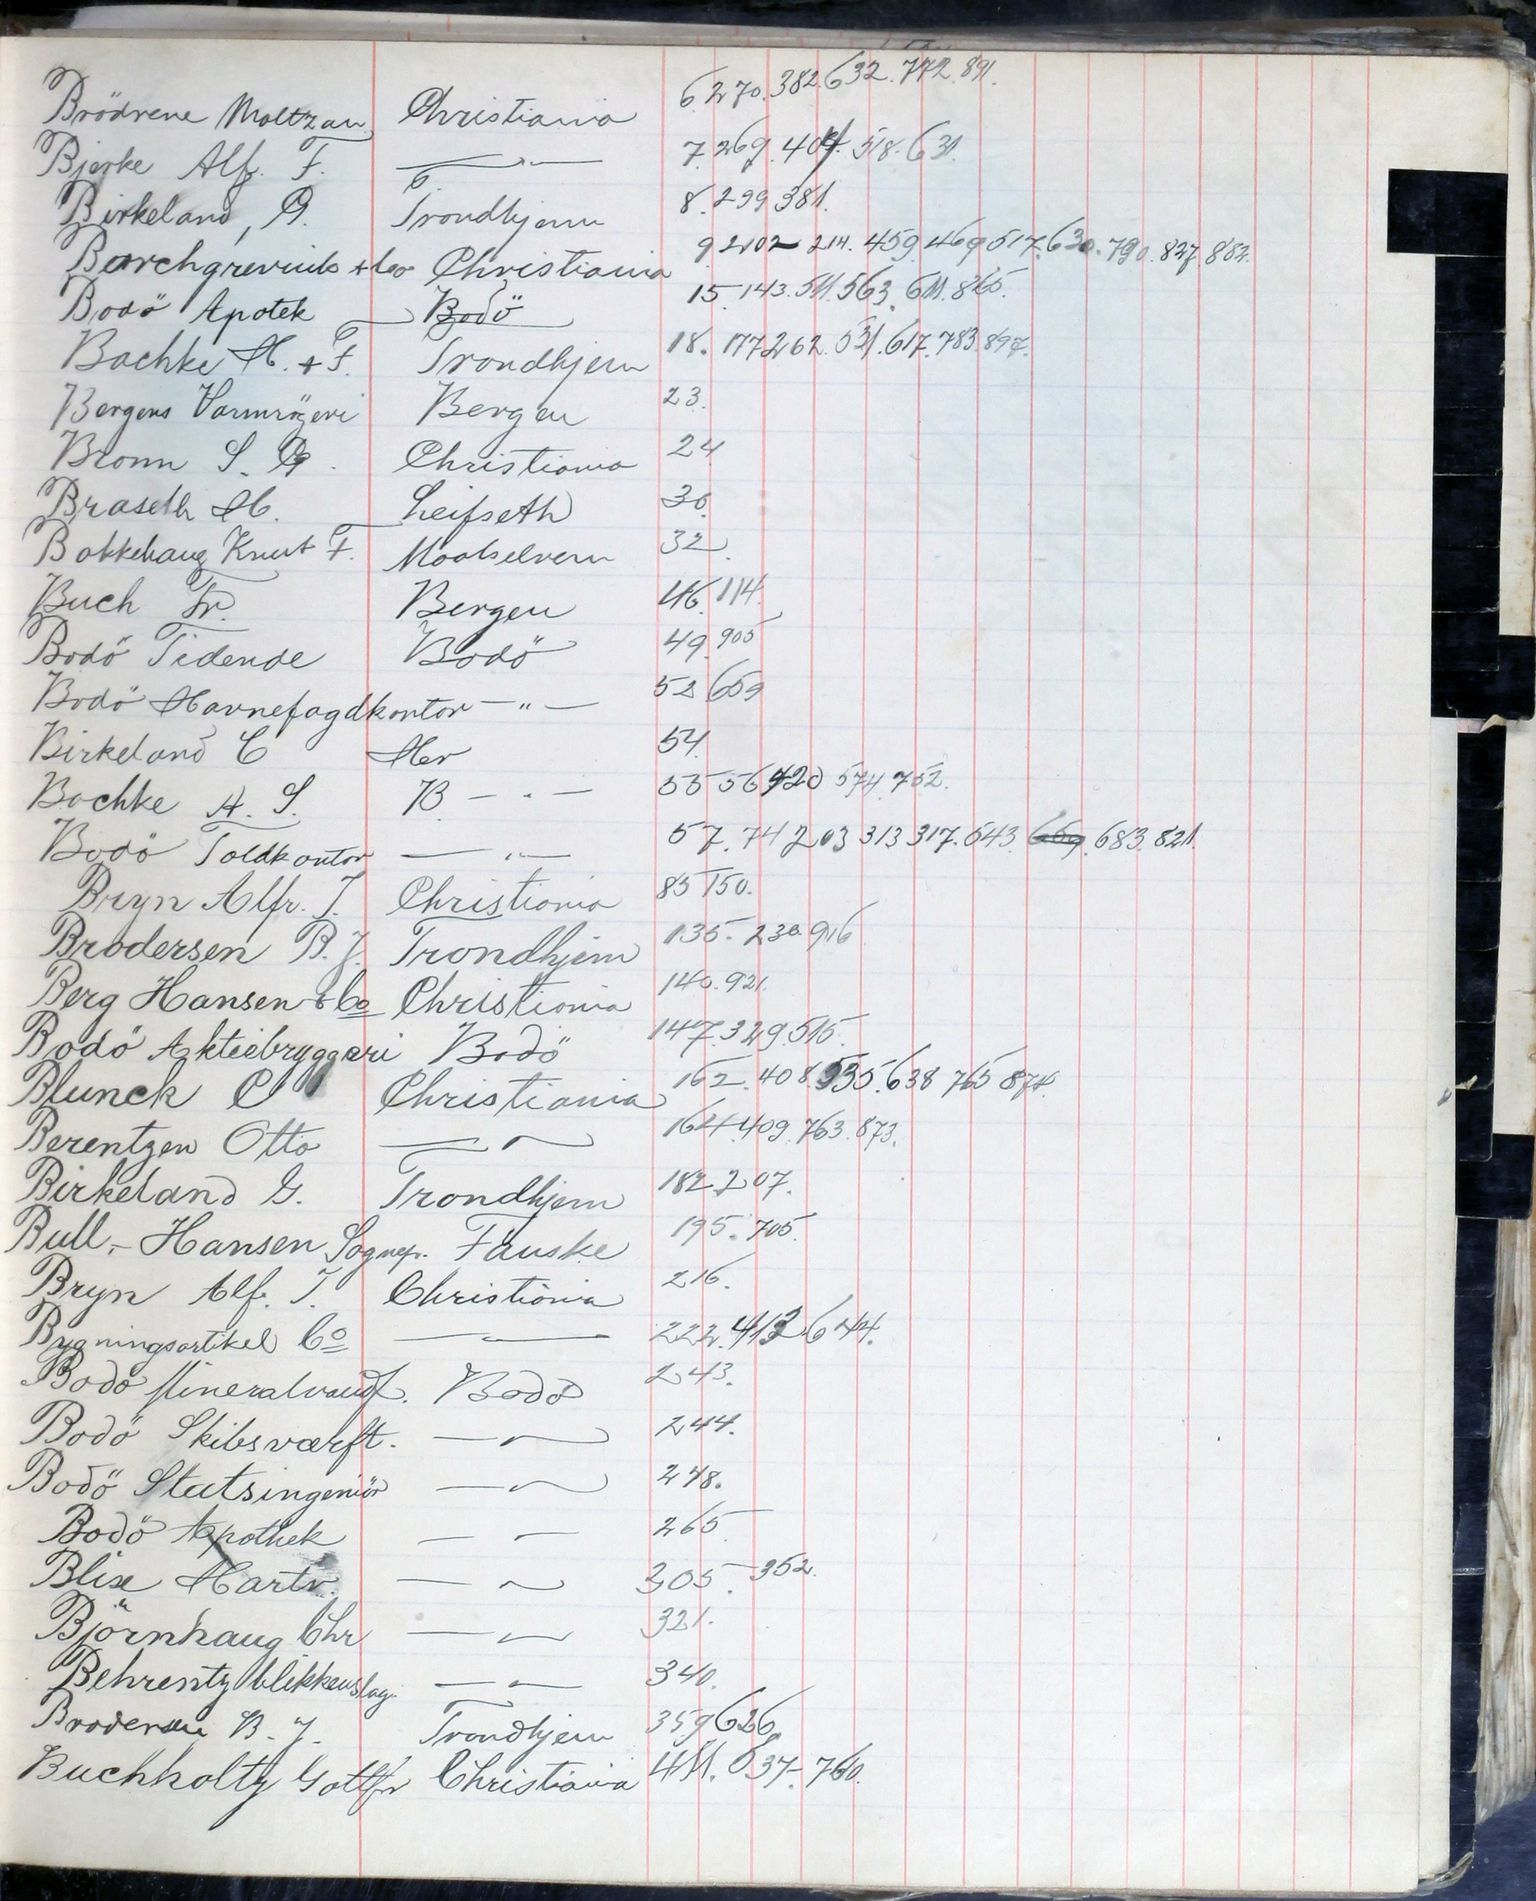 Brödrene Moltzau Christiania 6 270. 382 632. 772. 891.
Bjerke Alf. F. — " — 7. 269. 404. 518. 631.
Birkeland, G. Trondhjem 8. 299 381.
Borchgrevink & Co Christiania 9 2102 214. 459. 469 517. 630. 790. 827. 882.
Bodö Apotek Bodö 15. 143. 511. 563. 611. 865.
Bachke H. & F. Trondhjem 18. 177 262. 531. 617. 783. 897.
Bergens Varmrögeri Bergen 23.
Bronn S. G. Christiania 24
Braseth H. Leifseth 30.
Bakkehaug Knut F. Maalselven 32.
Buch Fr. Bergen 46. 114.
Bodö Tidende Bodö 49. 905
Bodö Havnefogdkontor — " — 52 659
Birkeland C Her 54.
Bachke A. S. B — " — 55 56 420 574. 752.
Bodö Toldkontor — " — 57. 74 203 313 317. 543. 659. 683. 821.
Bryn Alfr. J. Christiania 85 150.
Brodersen B. J. Trondhjem 135. 230. 916
Berg Hansen & Co Christiania 140. 921.
Bodö Aktiebryggeri Bodö 147. 329. 515.
Blunck C Christiania 162. 408 535. 638 765 874.
Berentzen Otto — " — 164. 409. 763. 873.
Birkeland G. Trondhjem 182 207.
Bull-Hansen Sognepr. Fauske 195. 705.
Bryn Alf. J. Christiania 216.
Bygningsartikel Co — " — 222. 413 644.
Bodö Mineralvandf. Bodö 243.
Bodö Skibsværft. — " — 244.
Bodö Statsingeniör — " — 248.
Bodö Apothek — — 265
Blix Hartv. — " — 305. 352.
Björnhaug Chr — " — 321.
Behrentz blikkenslag. — " — 340.
Brodersen B. J. Trondhjem 359 626.
Buchholtz Gottfr Christiania 411. 637. 760.